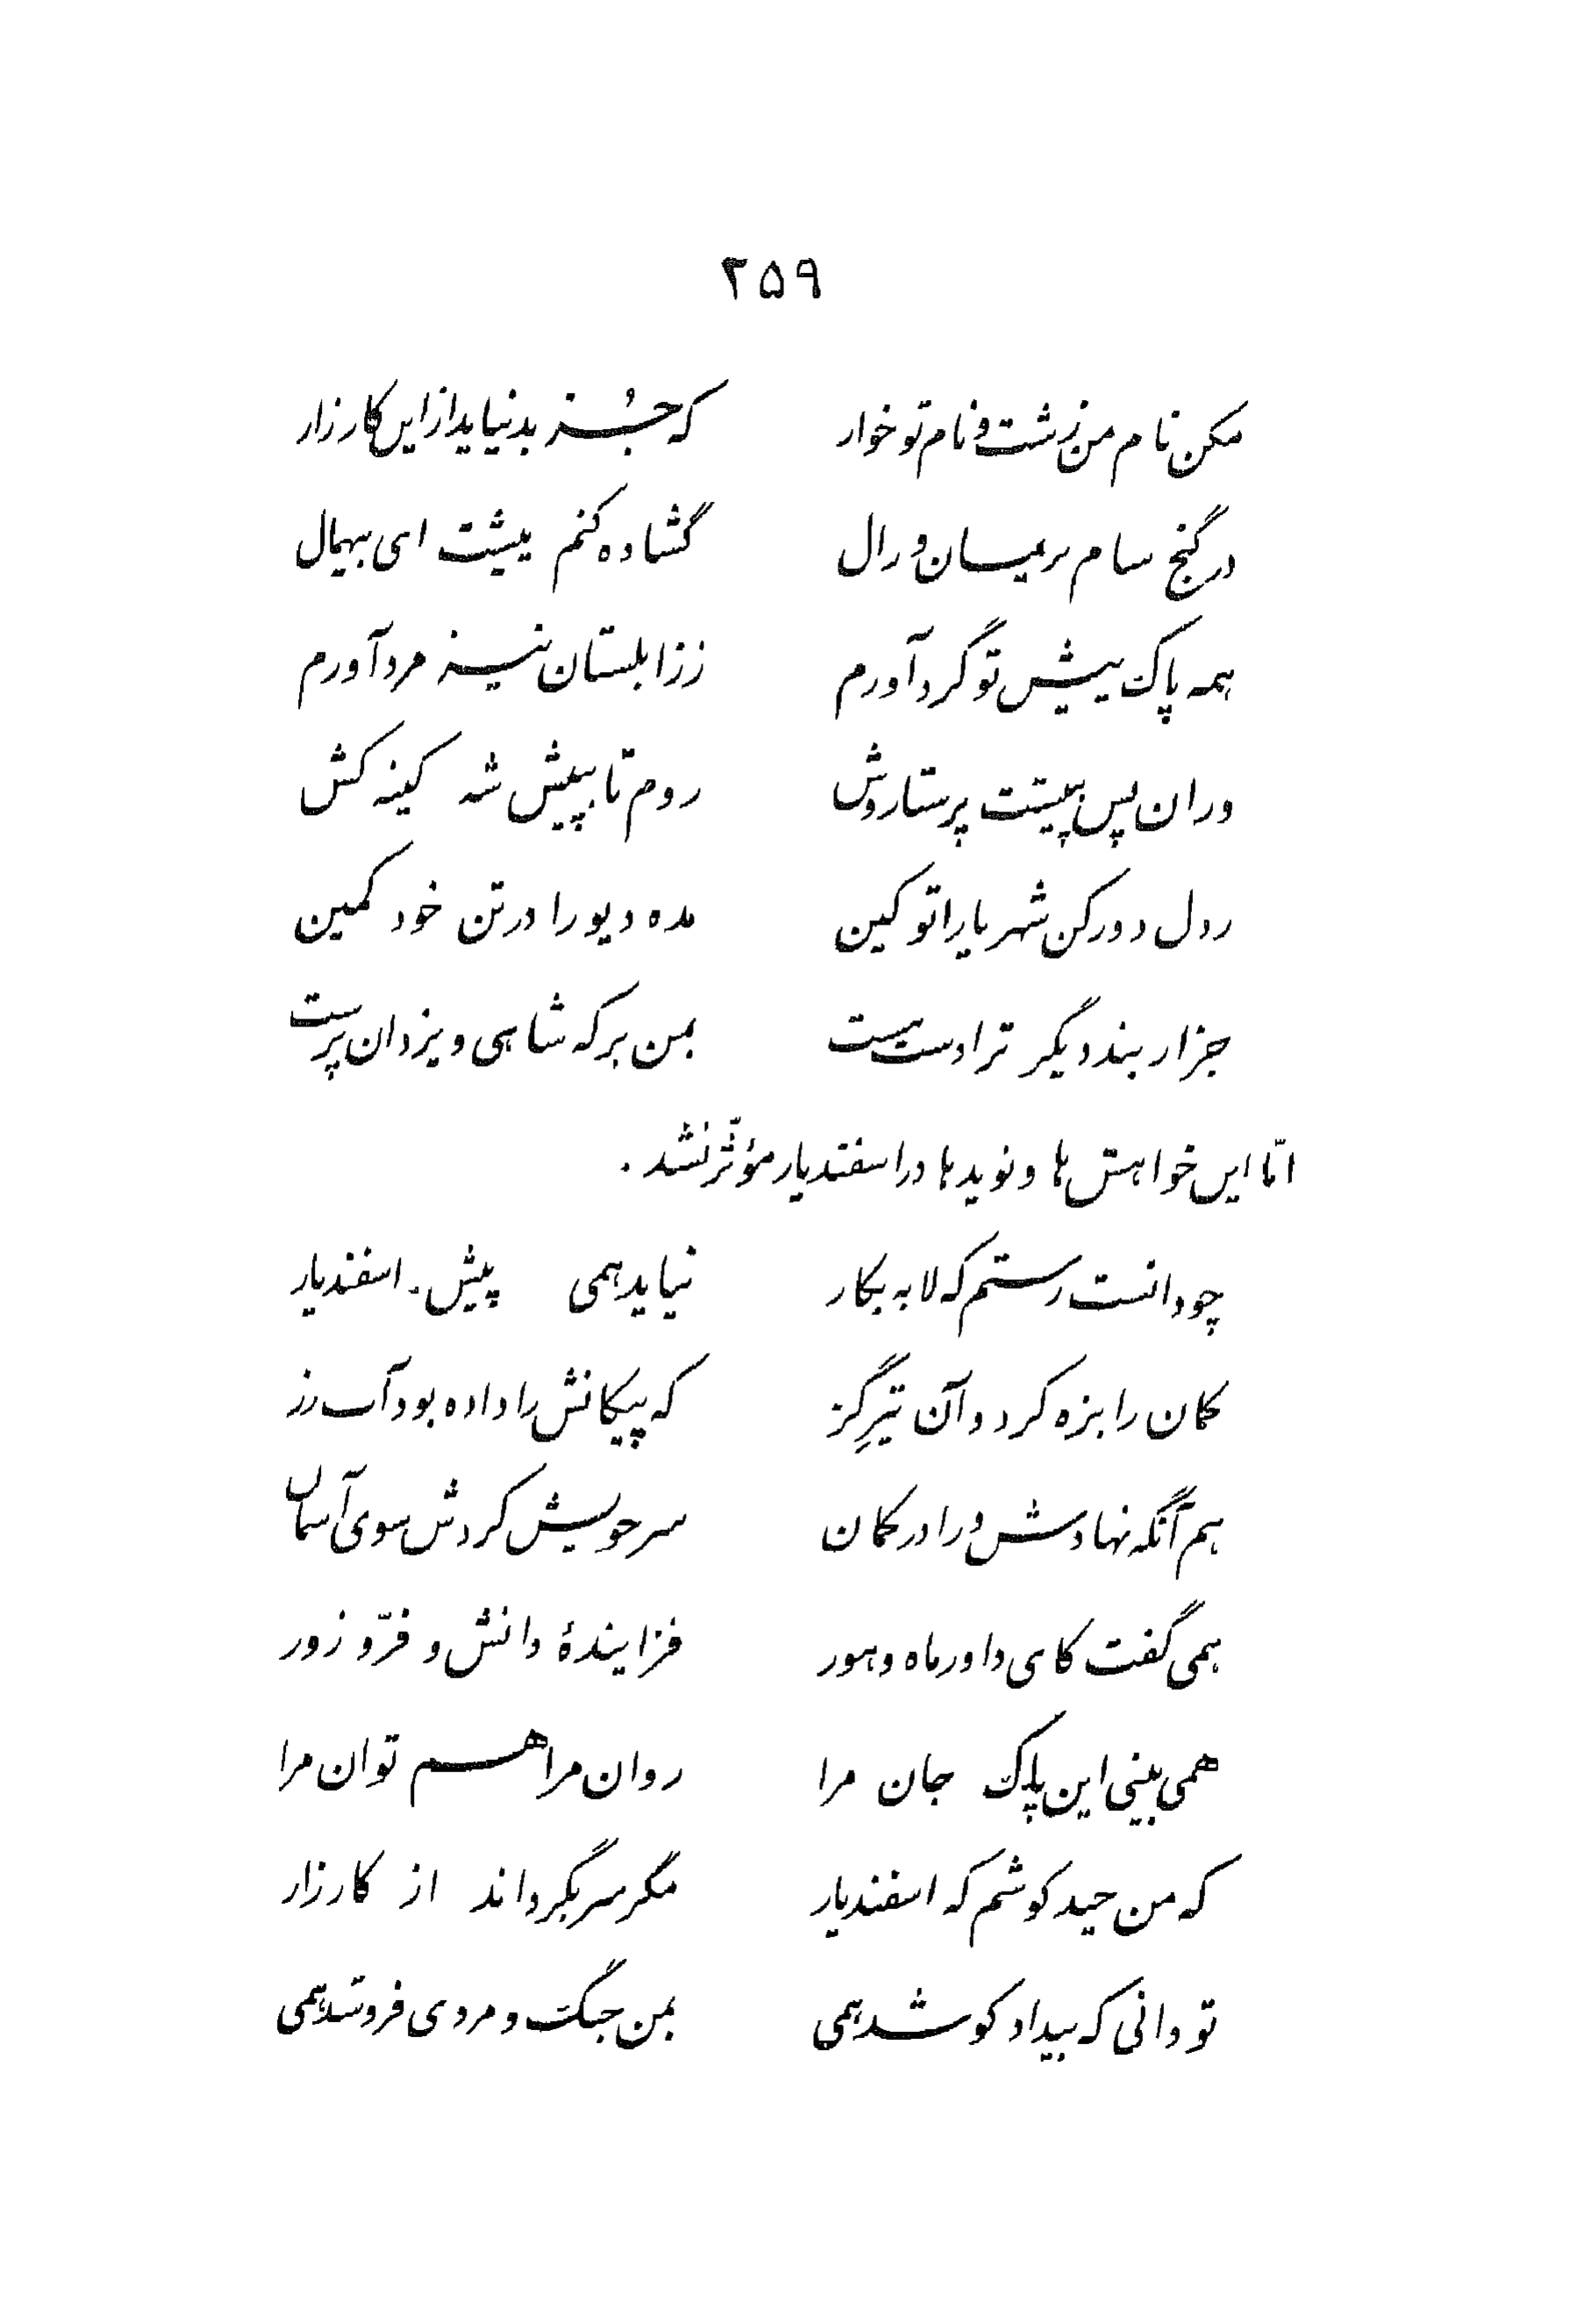 ۲۵۹
مکن نام من زشت و نام تو خوار که جُز بد نیاید از این کارزار
در گنج سام نریمان و زال گشاده کنم پیشت ای بیهمال
همه پاک پیش تو گرد آورم ز زابلستان نیز مرد آورم
وزان پس به پیشت پرستاروش روم تا به پیش شه کینه کش
ز دل دور کن شهریارا تو کین مده دیو را در تن خود کمین
جز از بند دیگر ترا دست هست بمن بر که شاهی و یزدان پرست
امّا این خواهش‌ها و نویدها در اسفندیار مؤثّر نشد .
چو دانست رستم که لابه بکار نیاید همی پیش اسفندیار
کمان را بزه کرد و آن تیرِ گز که پیکانش را داده بود آب رز
هم آنگه نهادش ورا در کمان سر خویش کردش سوی آسمان
همی گفت کای داور ماه و هور فزایندهٔ دانش و فرّ و زور
همی بینی این پاک جان مرا روان مرا هم توان مرا
که من چند کوشم که اسفندیار مگر سر بگرداند از کارزار
تو دانی که بیداد کوشد همی بمن جنگ و مردی فروشد همی